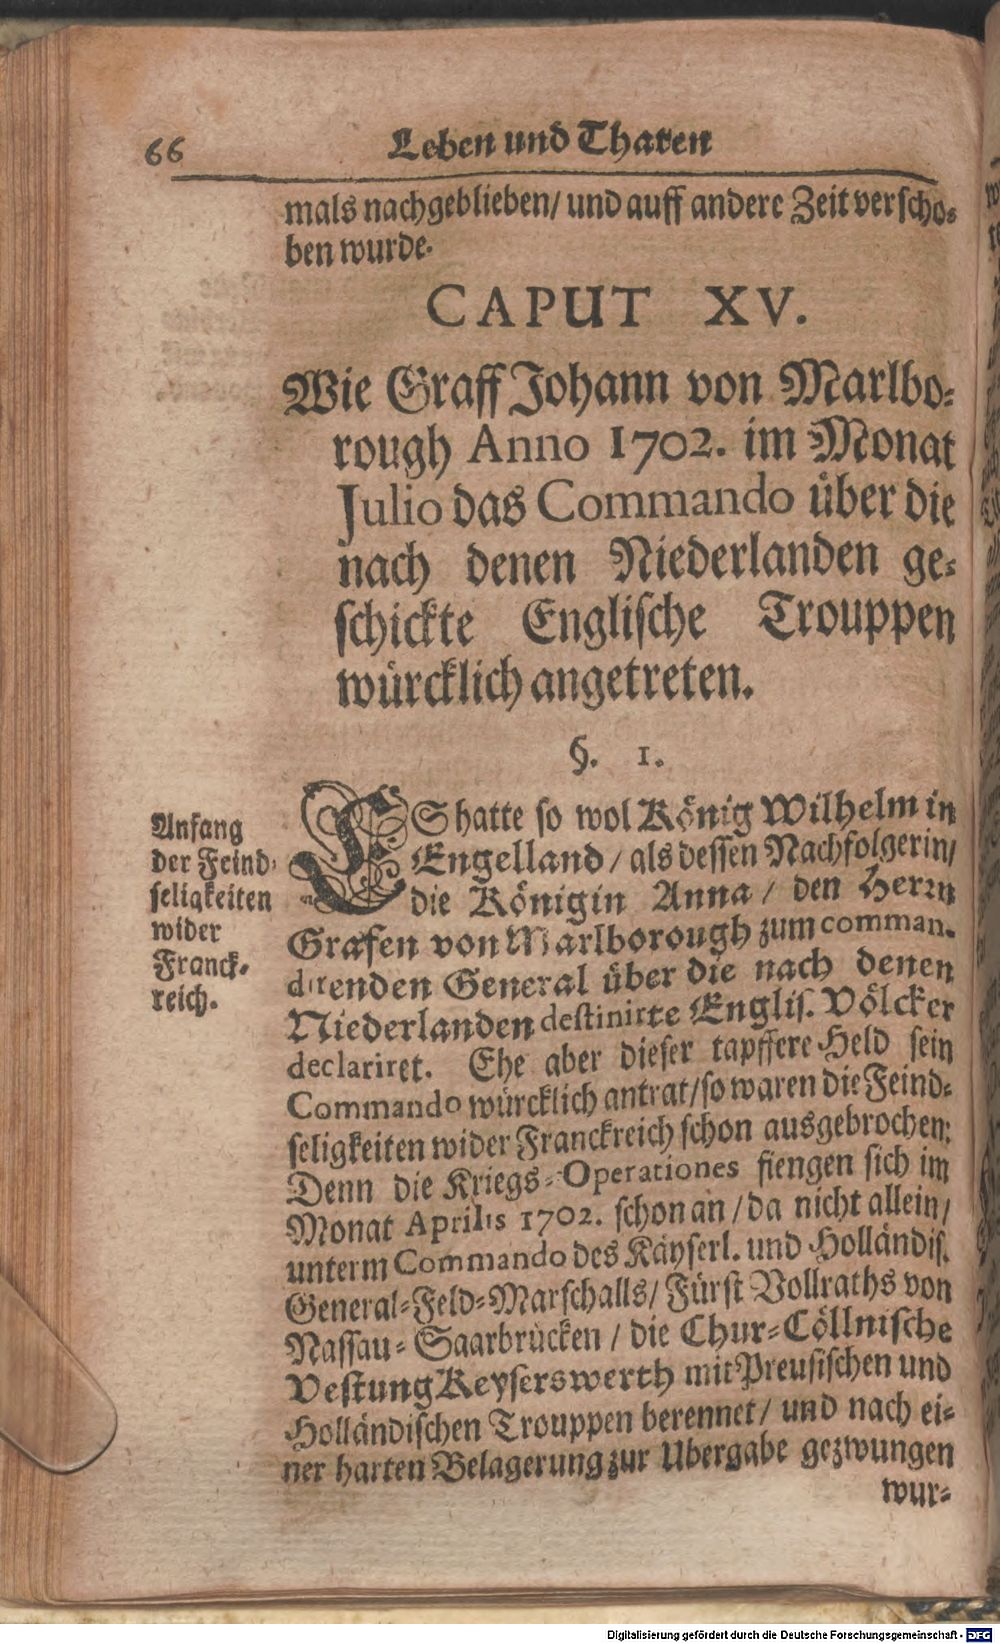 66
Leben und Thaten
mals nachgeblieben/ und auff andere Zeit verscho-
ben wurde.
CAPUT XV.
Wie Graff Johann von Marlbo-
rough Anno 1702. im Monat
Julio das Commando über die
nach denen Niederlanden ge-
schickte Englische Trouppen
würcklich angetreten.
§. 1.
Anfang
der Feind-
seligkeiten
wider
Franck-
reich.
ES hatte so wol König Wilhelm in
Engelland / als dessen Nachfolgerin/
die Königin Anna / den Herrn
Grafen von Marlborough zum comman-
direnden General über die nach denen
Niederlanden destinirte Englis. Völcker
declariret. Ehe aber dieser tapffere Held sein
Commando würcklich antrat/ so waren die Feind-
seligkeiten wider Franckreich schon ausgebrochen:
Denn die Kriegs-Operationes fiengen sich im
Monat Aprilis 1702. schon an / da nicht allein/
unterm Commando des Käyserl. und Holländis.
General-Feld-Marschalls/ Fürst Vollraths von
Nassau-Saarbrücken / die Chur-Cöllnische
Vestung Keyserswerth mit Preusischen und
Holländischen Trouppen berennet/ und nach ei-
ner harten Belagerung zur Ubergabe gezwungen
wur-
Digitalisierung gefördert durch die Deutsche Forschungsgemeinschaft - DFG